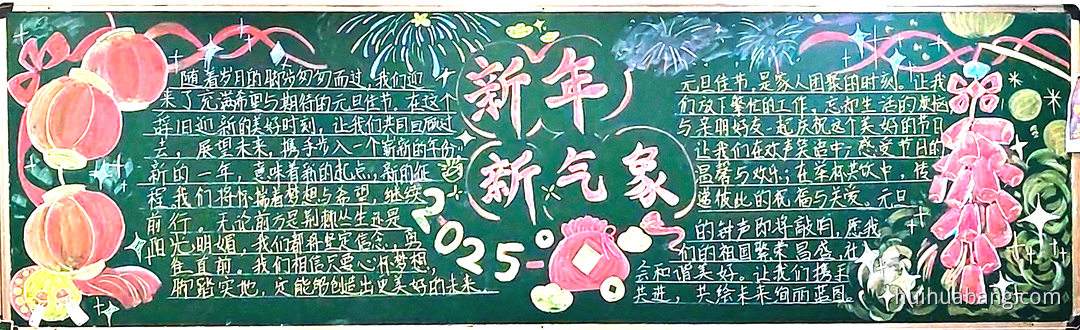 随着岁月的脚步匆匆而过，我们迎
来了充满希望与期待的元旦佳节，在这个
辞旧迎新的美好时刻，让我们共同回顾过
去，展望未来，携手步入一个崭新的年份
新的一年，意味着新的起点，新的征
程，我们将怀揣着梦想与希望，继续
前行。无论前方是荆棘丛生还是
阳光明媚，我们都将坚定信念，勇
往直前。我们相信只要心怀梦想，
脚踏实地，定能够创造出更美好的未来。
新年
新气象
2025
元旦佳节，是家人团聚的时刻。让我
们放下繁忙的工作，忘却生活的烦恼
与亲朋好友一起庆祝这个美好的节日
让我们在欢声笑语中，感受节日的
温馨与欢乐；在举杯共饮中，传
递彼此的祝福与关爱。元旦
的钟声即将敲响，愿我
们的祖国繁荣昌盛，社
会和谐美好。让我们携手
共进，共绘未来绚丽蓝图。
huihuabang.com